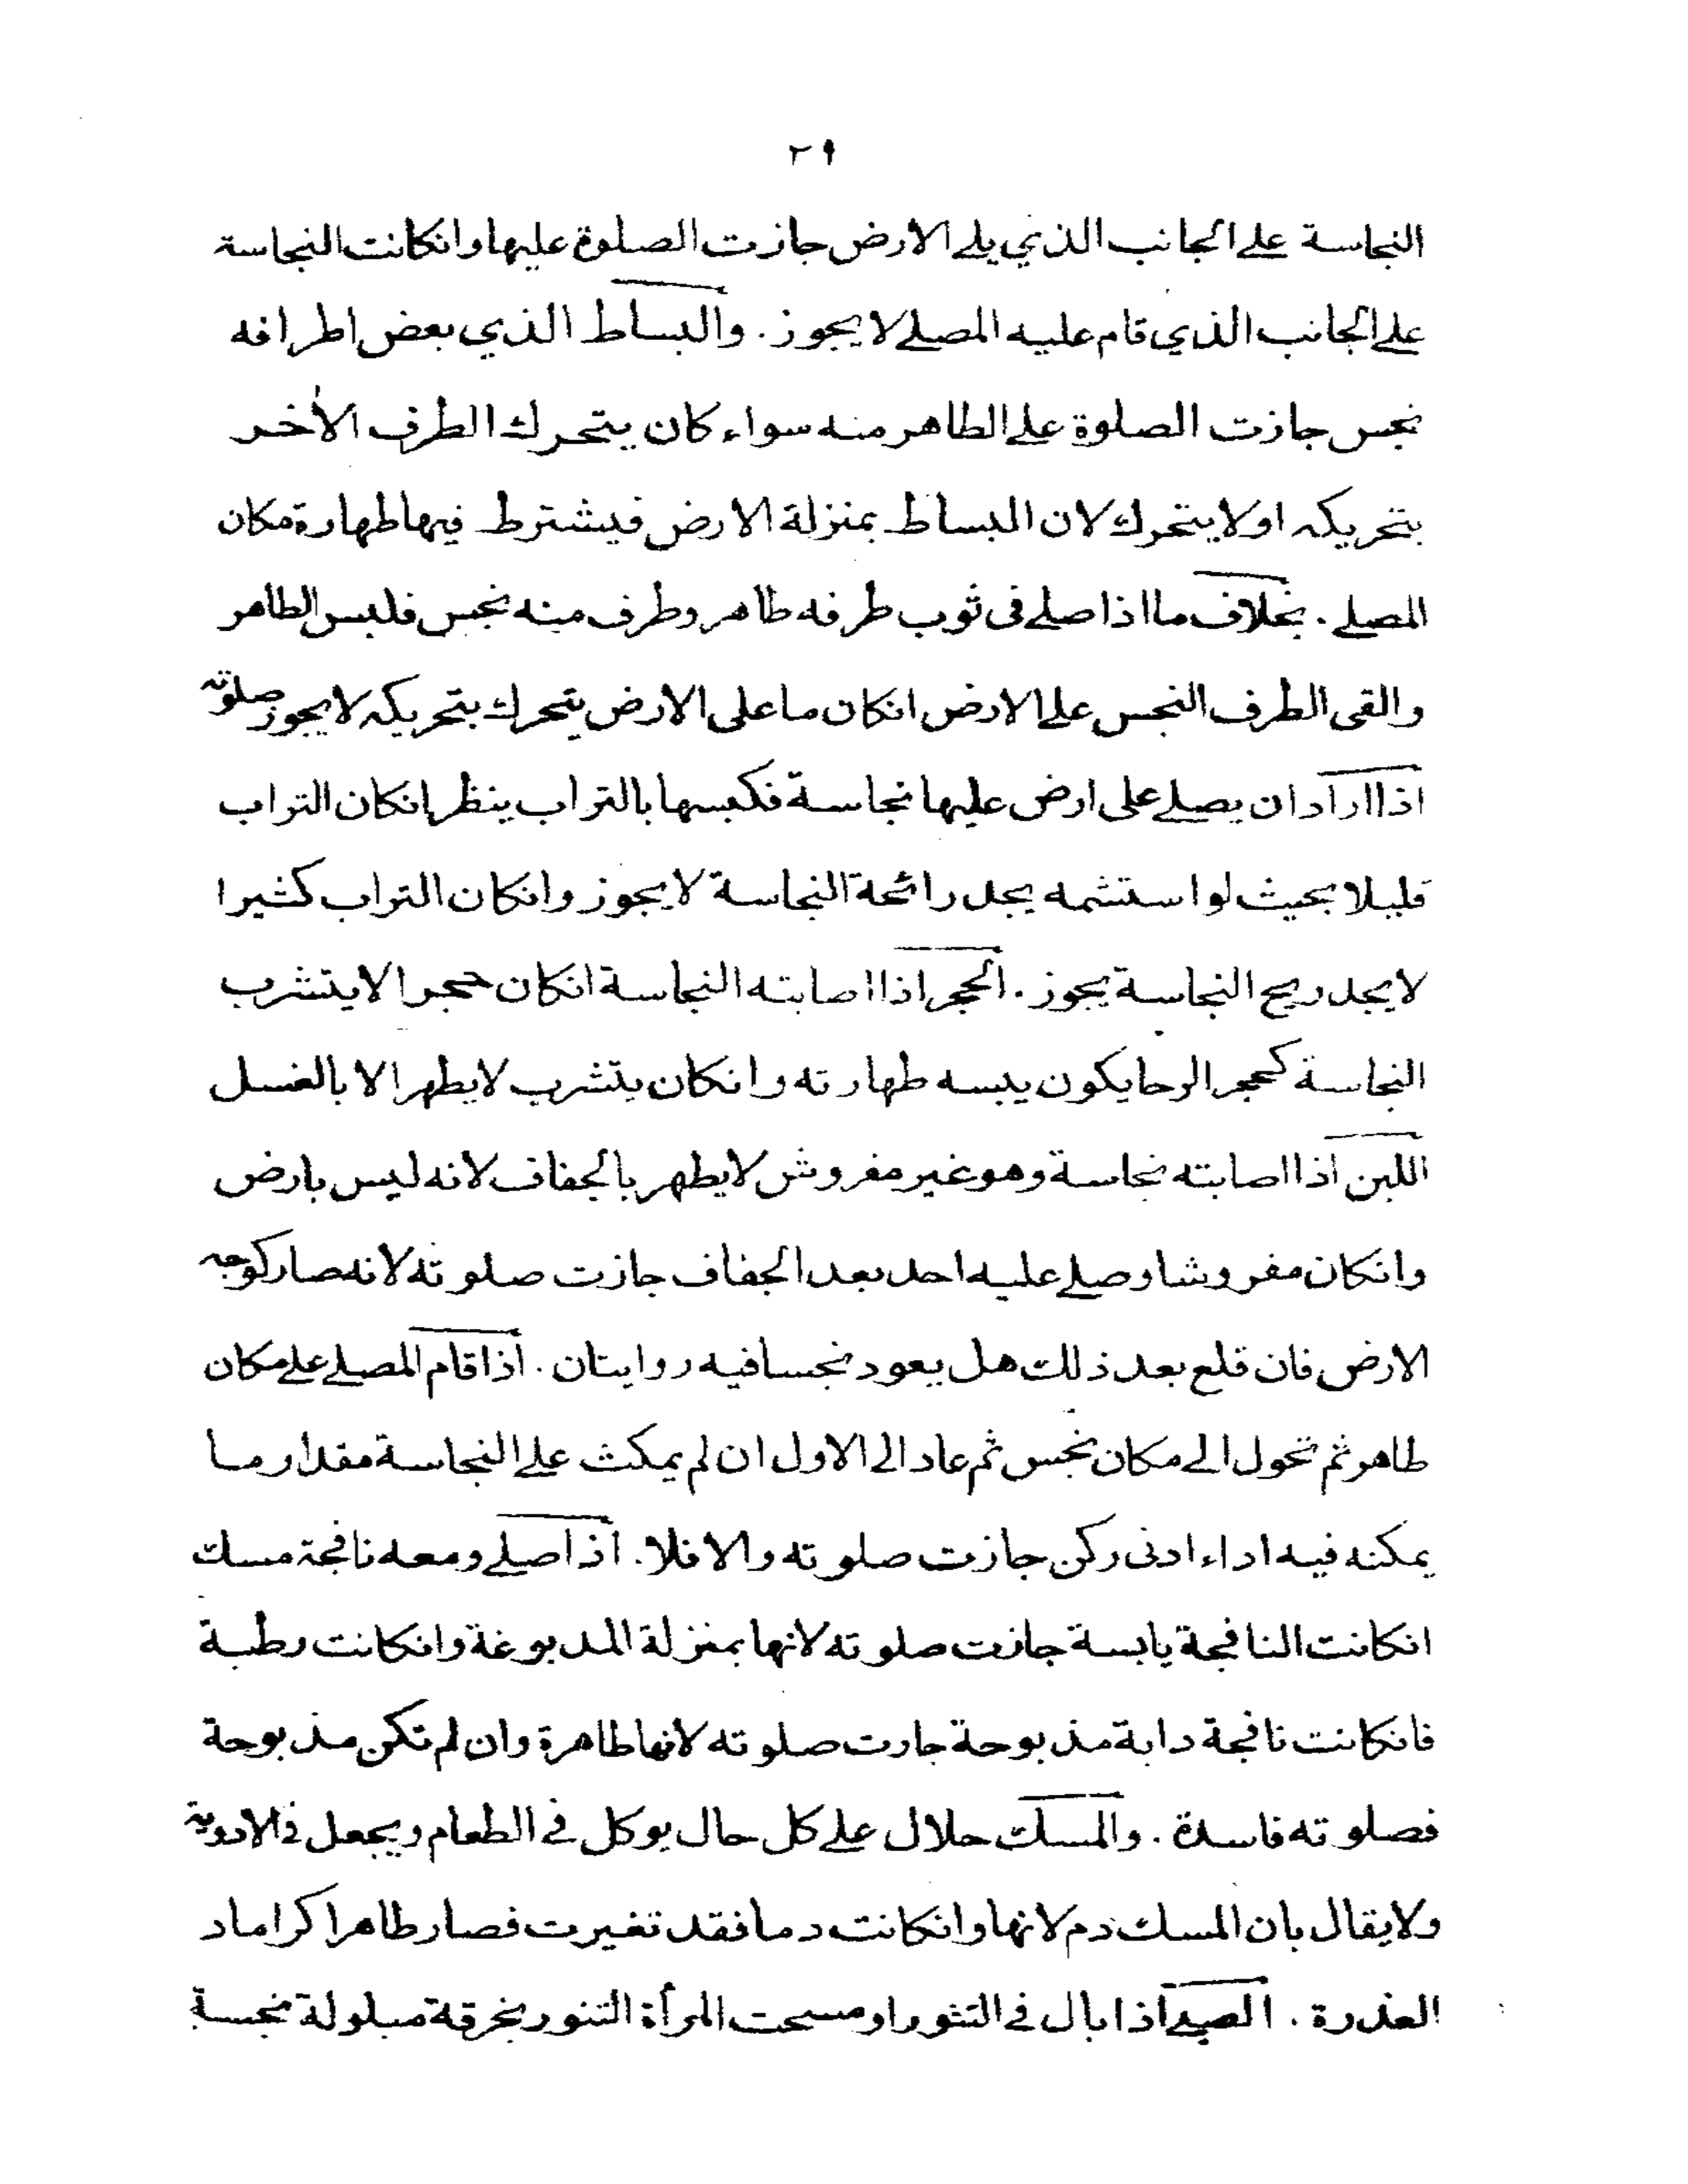 ٢٩
النجاسة على الجانب الذي يلي الارض جازت الصلوة عليها وانكانت النجاسة
على الجانب الذي قام عليه المصلي لا يجوز. والبساط الذي بعض اطرافه
نجس جازت الصلوة على الطاهر منه سواء كان يتحرك الطرف الأخر
بتحريكه او لا يتحرك لان البساط بمنزلة الارض فيشترط فيها طهارة مكان
المصلي. بخلاف ما اذا صلى فى ثوب طرفه طاهر وطرف منه نجس فلبس الطاهر
والقى الطرف النجس على الارض انكان ما على الارض يتحرك بتحريكه لا يجوز صلوته
اذا اراد ان يصلي على ارض عليها نجاسة فكبسها بالتراب ينظر انكان التراب
قليلا بحيث لو استشمه يجد رائحة النجاسة لا يجوز وانكان التراب كثيرا
لا يجد ريح النجاسة يجوز. الحجر اذا اصابته النجاسة انكان حجرا لا يتشرب
النجاسة كحجر الرحا يكون يبسه طهارته وانكان يتشرب لا يطهر الا بالغسل
اللبن اذا اصابته نجاسة وهو غير مفروش لا يطهر بالجفاف لانه ليس بارض
وانكان مفروشا وصلى عليه احد بعد الجفاف جازت صلوته لانه صار كوجه
الارض فان قلع بعد ذلك هل يعود نجسا فيه روايتان. اذا قام المصلي على مكان
طاهر ثم تحول الى مكان نجس ثم عاد الى الاول ان لم يمكث على النجاسة مقدار ما
يمكنه فيه اداء ادنى ركن جازت صلوته والا فلا. اذا صلى ومعه نافجة مسك
انكانت النافجة يابسة جازت صلوته لانها بمنزلة المدبوغة وانكانت رطبة
فانكانت نافجة دابة مذبوحة جازت صلوته لانها طاهرة وان لم تكن مذبوحة
فصلوته فاسدة. والمسك حلال على كل حال يوكل في الطعام ويجعل في الادوية
ولا يقال بان المسك دم لانها وانكانت دما فقد تغيرت فصار طاهرا كراماد
العذرة. الصبي اذا بال في التنور او مسحت المرأة التنور بخرقة مبلولة نجسة